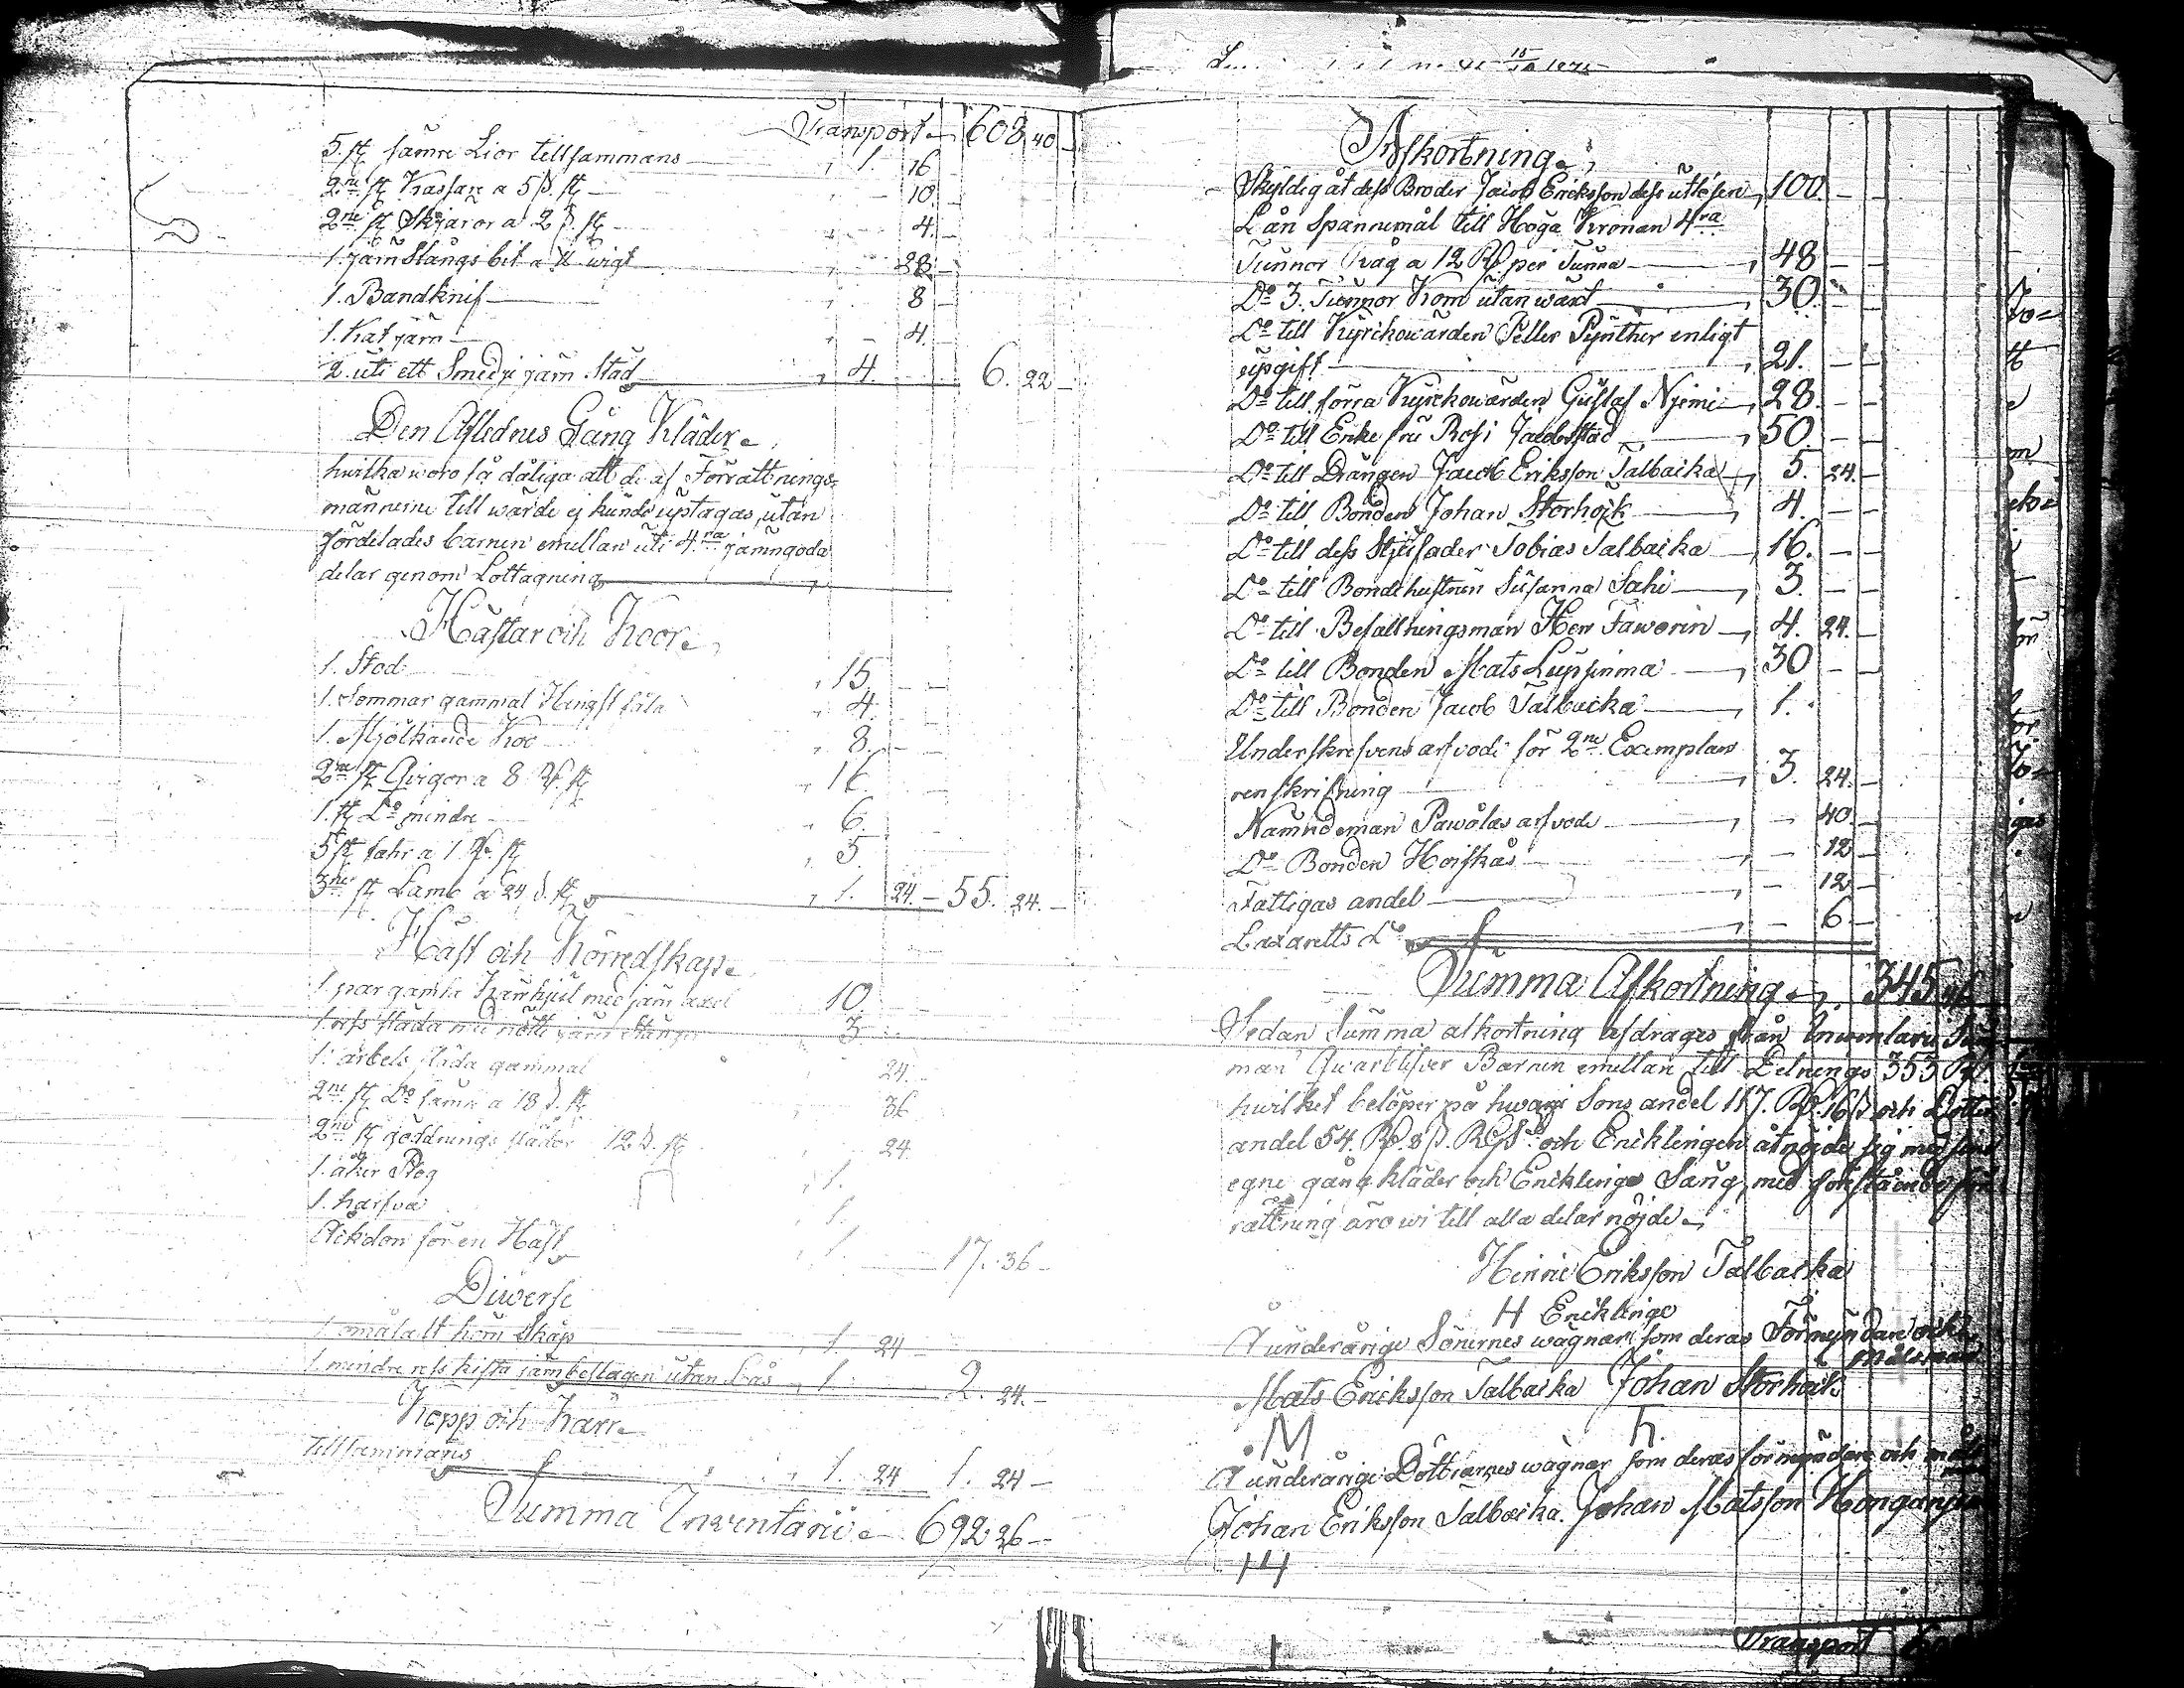 Transport 608 40
5 st sämre Lior tillsammans 1. 16
2ne st Kassare a 5 ß. st 10
2ne st Skjäror a 2 ß. st 4.
1. jarn Stångs bit a lb wigt 28
1. Bandknif 8
1. Kat jarn 4.
2. uti ett Smedje järn Städ 4. 6. 22
Den Aflednes Gång Kläder
hwilka woro så dåliga att de af Förrättnings
männerne till wärde ej kunde uptagas, utan
fördelades barnen emellan uti 4ra jämngoda
delar genom Lottagning
Hästar och Koor
1. Stod 15
1. Sommar gammal Hingst fåla 4.
1. Mjölkande Koo 8.
2ne st Qvigor a 8 Rb. st 16.
1. st Do mindre 6.
5 st fåhr a 1 Rb. st 5.
3ne st Lamb a 24 ß. st 1. 24. 55. 24.
Häst och Körredskap
1. par gamla Kärrhjul med jarn axel 10
1. ress släda med nötte järn Stänger 3
1. arbets släda gammal 24.
2ne st Do sämre a 18 ß. st 36
2ne st gödnings slädor 12 ß. st 24.
1. åker Plog 1.
1. harfva 1.
Åkdon för en Häst 1. 17. 36
Diwerse
1 omålalt hörn Skåp 1. 24
1. mindre ress kista järnbeslagen utan Lås 1. 2. 24.
Kopp och Kärre
tillsammans 1. 24 1. 24
Summa Inventarii 692 26
Afkortning
Skyldig åt dess Broder Jacob Eriksson dess utlösen 100.
Lån Spannemål till Höga Kronan 4ra
Tunnor Råg a 12 Rb. per Tunna 48
Do 3. Tunnor Korn utan wäxt 30.
Do till Kyrckowärden Peller Pynther enligt
upgift 21.
Do till förra Kyrckowärden Gustaf Njemi 28.
Do till Enke fru Rosi Jacobstad 50.
Do till Drängen Jacob Eriksson Talbacka 5. 24.
Do till Bonden Johan Storhöik 4.
Do till dess Stjuffader Tobias Talbacka 16.
Do till Bondehustrun Susanna Sahi 3.
Do till Befallningsman Herr Faworin 4. 24.
Do till Bonden Mats Luppinma 30
Do till Bonden Jacob Talbacka 1.
Underskrefvens arfvode för 2ne Exemplars
renskrifning 3. 24.
Nämndeman Pawolas arfvode 40.
Do Bonden Hoiskas 12
Fattigas andel 12
Lazaretts Do 6
Summa Afkortning 345
Sedan Summa afkortning afdrages från Inventarii Sum
man Qwarblifver Barnen emellan till Delnings 353 Rb.
hwilket belöper på hwarje Sons andel 117. Rb. 16 ß och Dotter
andel 54. Rb. 8 ß. Rgs och Encklingen åtnöjde sig med sine
egne gångkläder och Encklings Säng, med förestående för
rättning äro wi till alla delar nöjde
Hinric Eriksson Talbacka
H Encklinge
Å underårige Sönernes wägnar som deras Förmyndare och
målsman
Mats Ericksson Talbacka Johan Storhoik
M
Å underårige Dottrarnes wägnar som deras förmyndare och
Johan Eriksson Talbacka. Johan Matsson
Transport